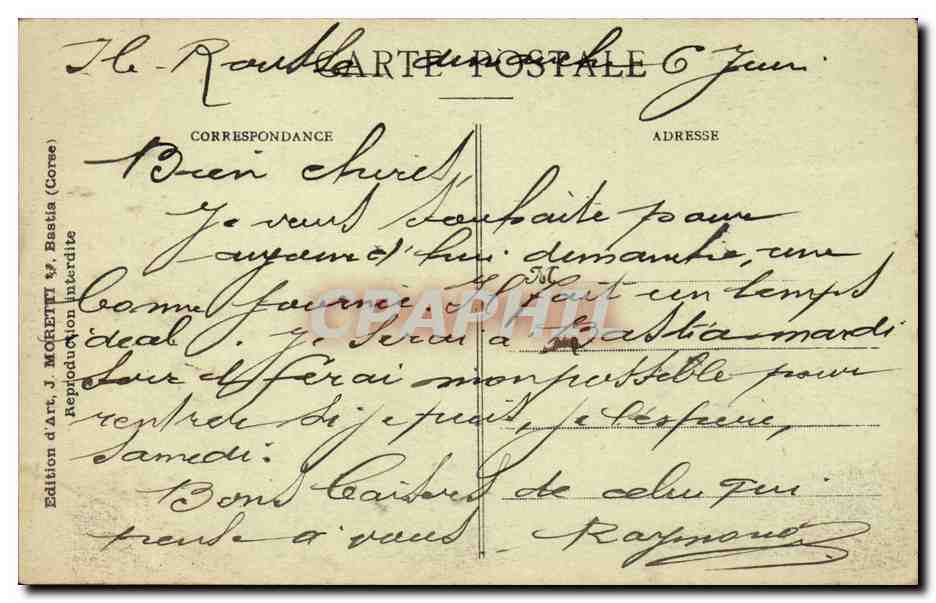 Ile-Rousse dimanche 6 Juin
CARTE POSTALE
CORRESPONDANCE
ADRESSE
Bien chères,
Je vous souhaite pour
aujourd'hui dimanche, une
bonne journée. Il fait un temps
idéal. Je serai à Bastia mardi
soir et ferai mon possible pour
rentrer si je puis, je l'espère,
samedi.
Bons baisers de celui qui
pense à vous
Raymond
M
CPAPHIL
Edition d'Art, J. MORETTI Bastia (Corse)
Reproduction interdite